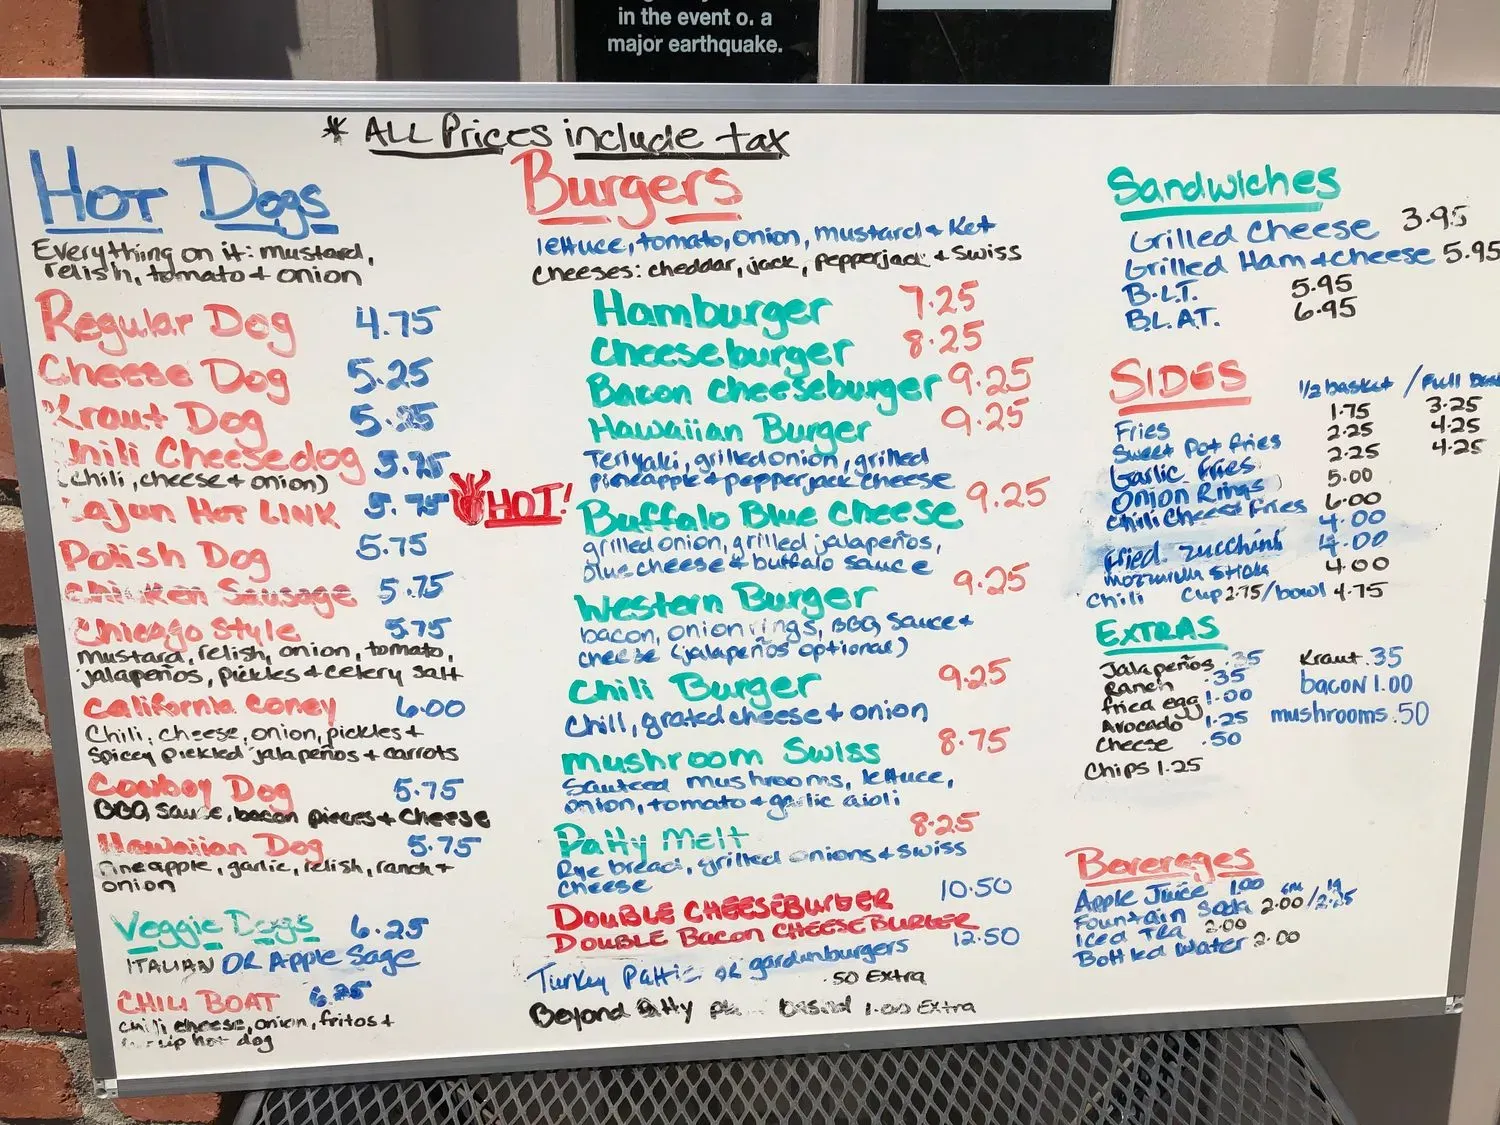 in the event o. a
major earthquake.
* ALL Prices include tax
HOT DOgs
Everything on it: mustard,
relish, tomato + onion
Regular Dog 4.75
Cheese Dog 5.25
Kraut Dog 5.25
Chili Cheesedog 5.75
(chili, cheese + onion)
Cajun HOT LINK 5.75 HOT!
Polish Dog 5.75
Chicken Sausage 5.75
Chicago Style 5.75
mustard, relish, onion, tomato,
jalapeños, pickles + celery salt
California Coney 6.00
Chili, cheese, onion, pickles +
spicey pickled jalapeños + carrots
Cowboy Dog 5.75
BBQ sauce, bacon pieces + cheese
Hawaiian Dog 5.75
Pineapple, garlic, relish, ranch +
onion
Veggie Dogs 6.25
ITALIAN OR Apple Sage
CHILI BOAT 6.25
chili cheese, onion, fritos +
hot dog
Burgers
lettuce, tomato, onion, mustard + Ket
cheeses: cheddar, jack, pepperjack + swiss
Hamburger 7.25
Cheeseburger 8.25
Bacon Cheeseburger 9.25
Hawaiian Burger 9.25
Teriyaki, grilled onion, grilled
pineapple + pepperjack cheese
Buffalo Blue Cheese 9.25
grilled onion, grilled jalapeños,
blue cheese + buffalo sauce
Western Burger 9.25
bacon, onion rings, BBQ sauce +
cheese (jalapeños optional)
Chili Burger 9.25
Chili, grated cheese + onion
mushroom Swiss 8.75
Sauteed mushrooms, lettuce,
onion, tomato + garlic aioli
Patty Melt 8.25
Rye bread, grilled onions + swiss
cheese
DOUBLE CHEESEBURGER 10.50
DOUBLE Bacon CHEESEBURGER 12.50
Turkey Pattie OR gardenburgers
.50 Extra
Beyond Patty based 1.00 Extra
Sandwiches
Grilled Cheese 3.95
Grilled Ham + cheese 5.95
B.L.T. 5.95
B.L.A.T. 6.95
SIDES 1/2 basket / Full
Fries 1.75 3.25
Sweet Pot fries 2.25 4.25
Garlic Fries 2.25 4.25
Onion Rings 5.00
Chili Cheese Fries 6.00
4.00
Fried Zucchini 4.00
mozzarella sticks 4.00
Chili Cup 2.75/bowl 4.75
EXTRAS
Jalapeños .35 Kraut .35
Ranch .35 bacon 1.00
fried egg 1.00 mushrooms .50
Avocado 1.25
Cheese .50
Chips 1.25
Beverages
Apple Juice 1.00 sm lg
Fountain Soda 2.00 / 2.25
Iced Tea 2.00
Bottled Water 2.00